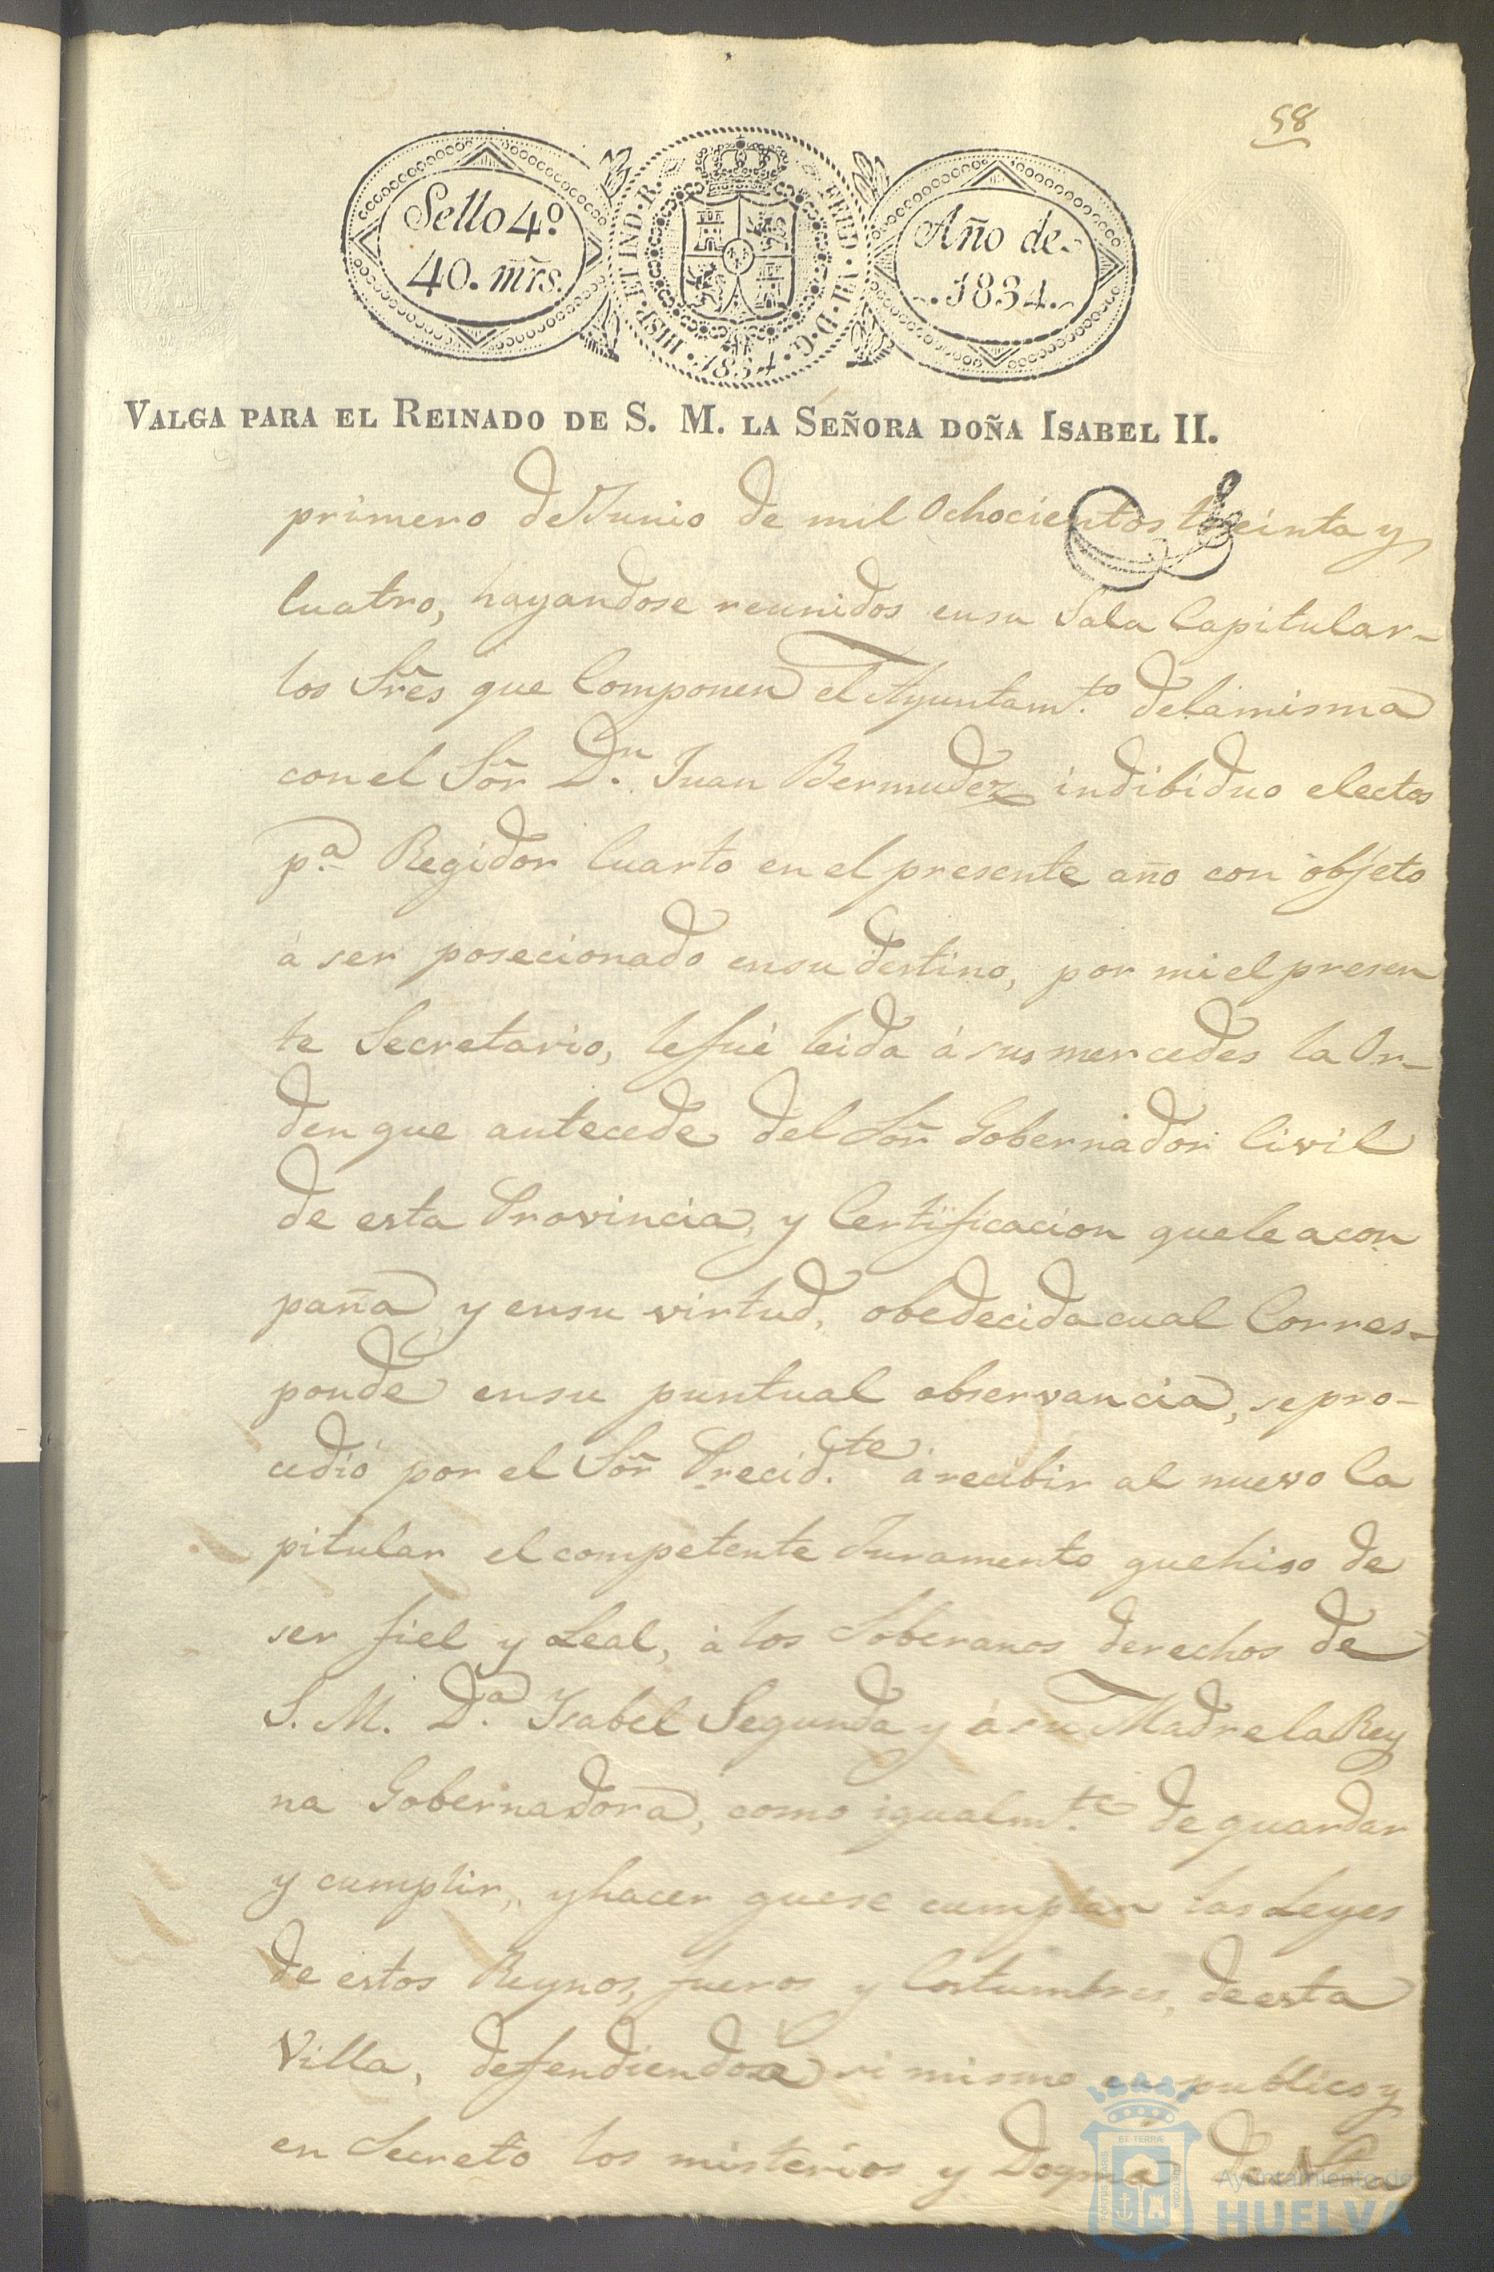 58
Sello 4º
40. mrs.
HISP. ET IND. R.
1834
Año de
1834.
VALGA PARA EL REINADO DE S. M. LA SEÑORA DOÑA ISABEL II.
primero de Junio de mil Ochocientos treinta y
Cuatro, hayandose reunidos ensu Sala Capitular
los Sres que Componen el Ayuntam.to delamisma
con el Sor D.n Juan Bermudez indibiduo electos
p.a Regidor Cuarto en el presente año con objeto
á ser posecionado ensu destino, por mi el presen
te Secretario, lefué leida á sus mercedes la Or-
den que antecede del Sor Gobernador Civil
de esta Provincia, y Certificacion quele acon
paña y ensu virtud, obedecida cual Corres-
ponde ensu puntual observancia, se pro-
cedió por el Sor Precid.te á recibir al nuevo Ca
pitular el competente Juramento quehiso de
ser fiel y Leal, á los Soberanos derechos de
S. M. D.a Isabel Segunda y á su Madre la Rey
na Gobernadora, como igualm.te de guardar
y cumplir, y hacer quese cumplan las Leyes
de estos Reynos, fueros y Costumbres, de esta
Villa, defendiendo a si mismo en publico y
en Secreto los misterios y Dogma de Sta
Ayuntamiento de
HUELVA